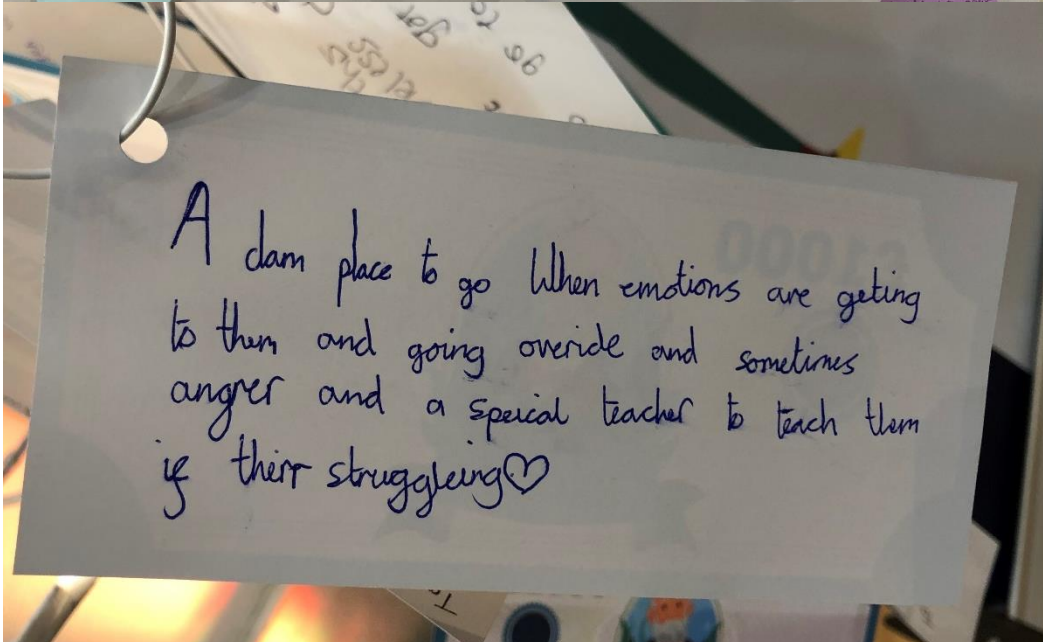 A clam place to go When emotions are geting
to them and going overide and sometimes
angrer and a speical teacher to teach them
if theirr struggleing♡
£1000